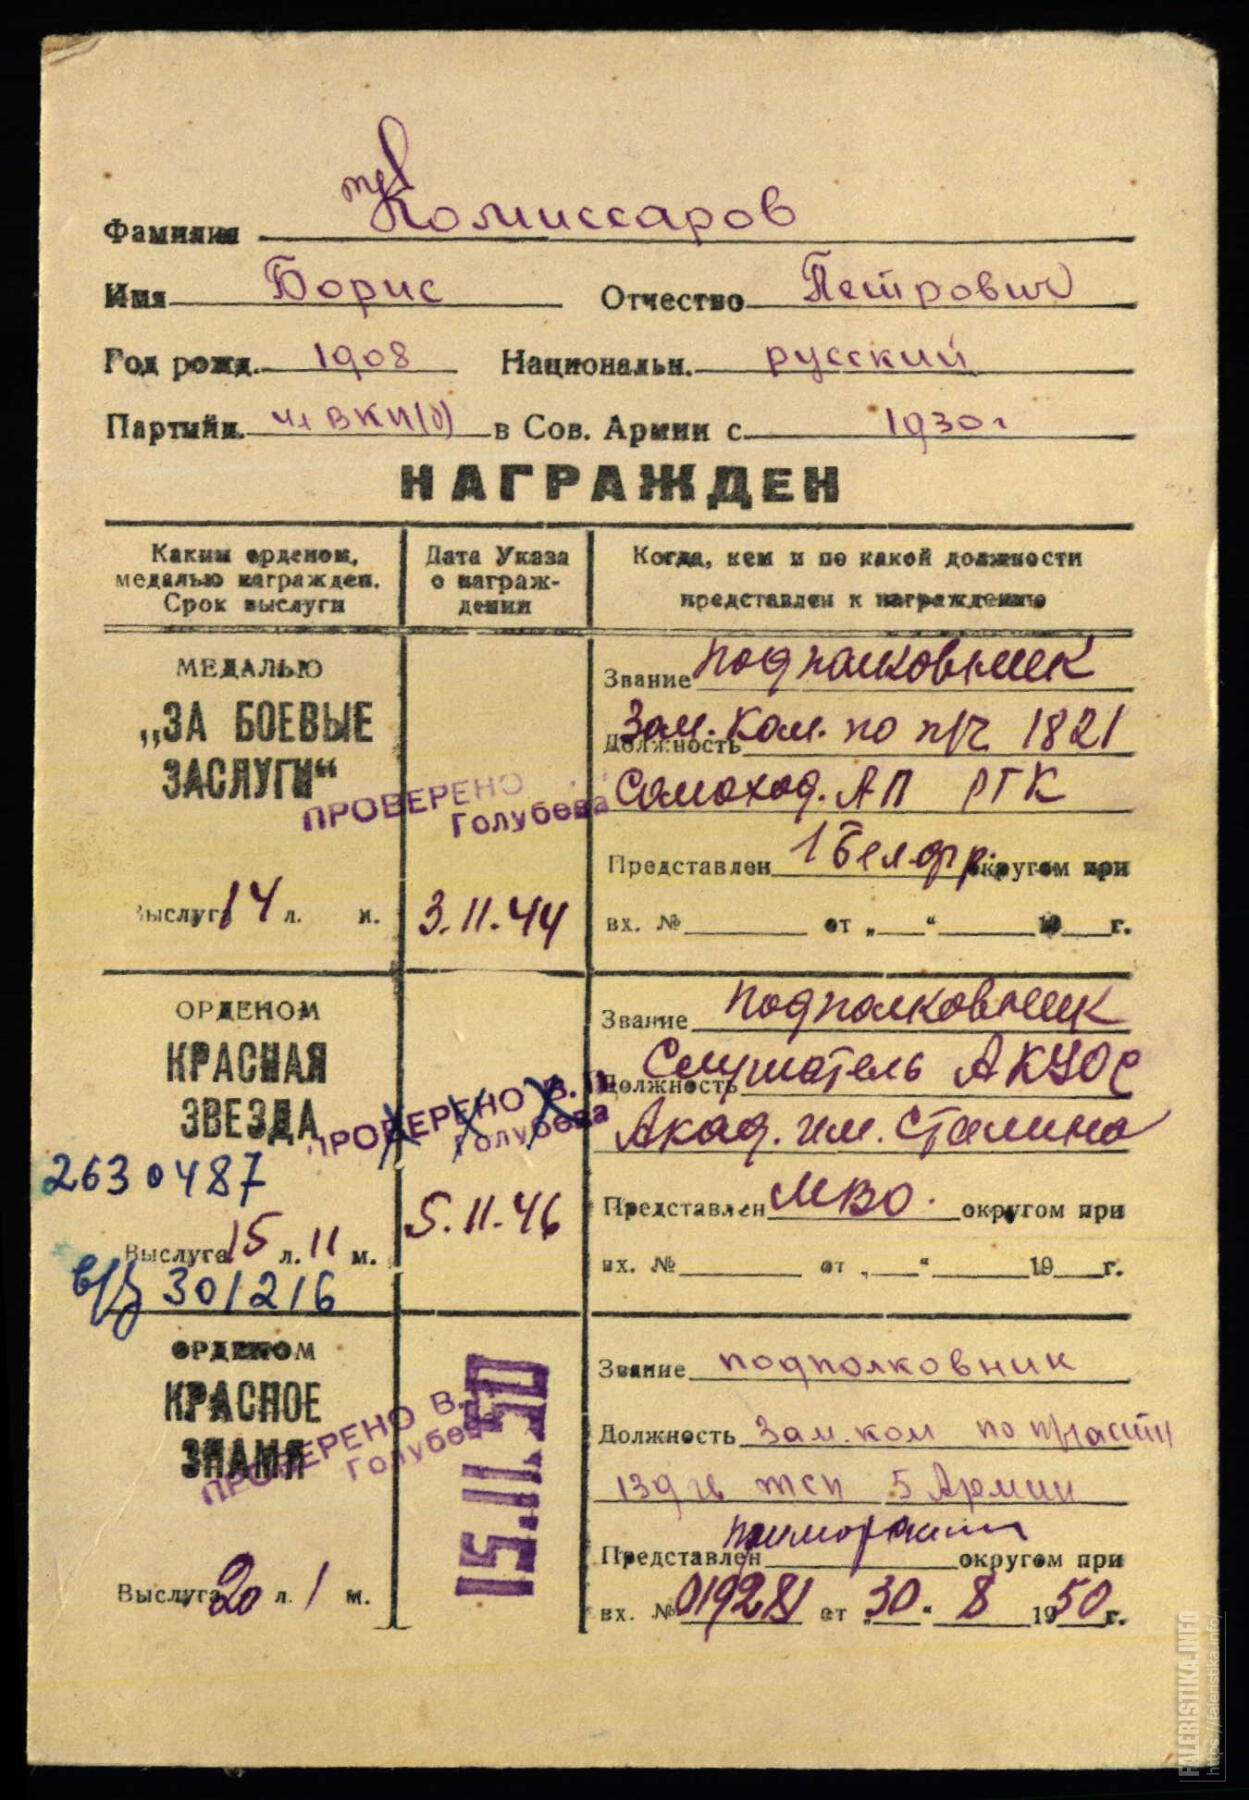 Фамилия Комиссаров
Имя Борис Отчество Петрович
Год рожд. 1908 Националын. русский
Партийн. чл ВКП(б) в Сов. Армии с 1930 г
НАГРАЖДЕН
Каким орденом,
медалью награжден.
Срок выслуги
Дата Указа
о награж-
дении
Когда, кем и по какой должности
представлен к награждению
МЕДАЛЬЮ
„ЗА БОЕВЫЕ
ЗАСЛУГИ“
ПРОВЕРЕНО
Голубева
Выслуга 14 л. м.
3.11.44
Звание подполковник
Должность Зам. Ком. по п/ч 1821
Самоход. АП РГК
Представлен 1 Бел.фр. округом при
вх. № от „ “ 19 г.
ОРДЕНОМ
КРАСНАЯ
ЗВЕЗДА
ПРОВЕРЕНО В. П.
Голубева
2630487
Выслуга 15 л. 11 м.
в/з 301216
5.11.46
Звание подполковник
Должность Слушатель АКУОС
Акад. им. Сталина
Представлен МВО. округом при
вх. № от „ “ 19 г.
ОРДЕНОМ
КРАСНОЕ
ЗНАМЯ
ПРОВЕРЕНО В. П.
Голубева
Выслуга 20 л. 1 м.
15.11.50
Звание подполковник
Должность Зам. ком по п/части
5 Армии
Представлен округом при
вх. № 019281 от „30“ 8 1950 г.
FALERISTIKA.INFO
https://faleristika.info/